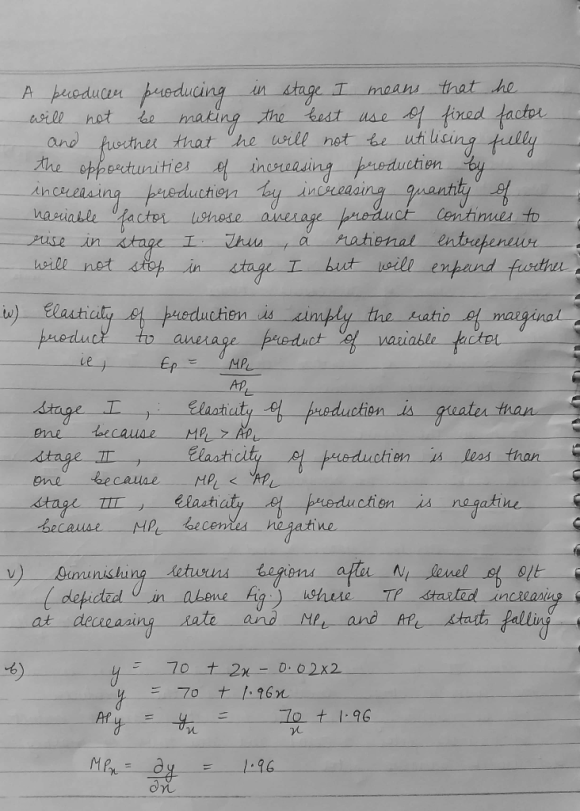 A producer producing in stage I means that he
will not be making the best use of fixed factor
and further that he will not be utilising fully
the opportunities of increasing production by
increasing production by increasing quantity of
variable factor whose average product continues to
rise in stage I. Thus, a rational entrepeneur
will not stop in stage I but will expand further
iv) Elasticity of production is simply the ratio of marginal
product to average product of variable factor
ie, Ep = MPL / APL
Stage I, Elasticity of production is greater than
one because MPL > APL
Stage II, Elasticity of production is less than
one because MPL < APL
Stage III, Elasticity of production is negative
because MPL becomes negative
v) Diminishing returns begions after N1 level of o/t
(depicted in above fig.) where TP started increasing
at decreasing rate and MPL and APL starts falling
b) y = 70 + 2x - 0.02x2
y = 70 + 1.96x
APy = y/x = 70/x + 1.96
MPx = ∂y/∂x = 1.96